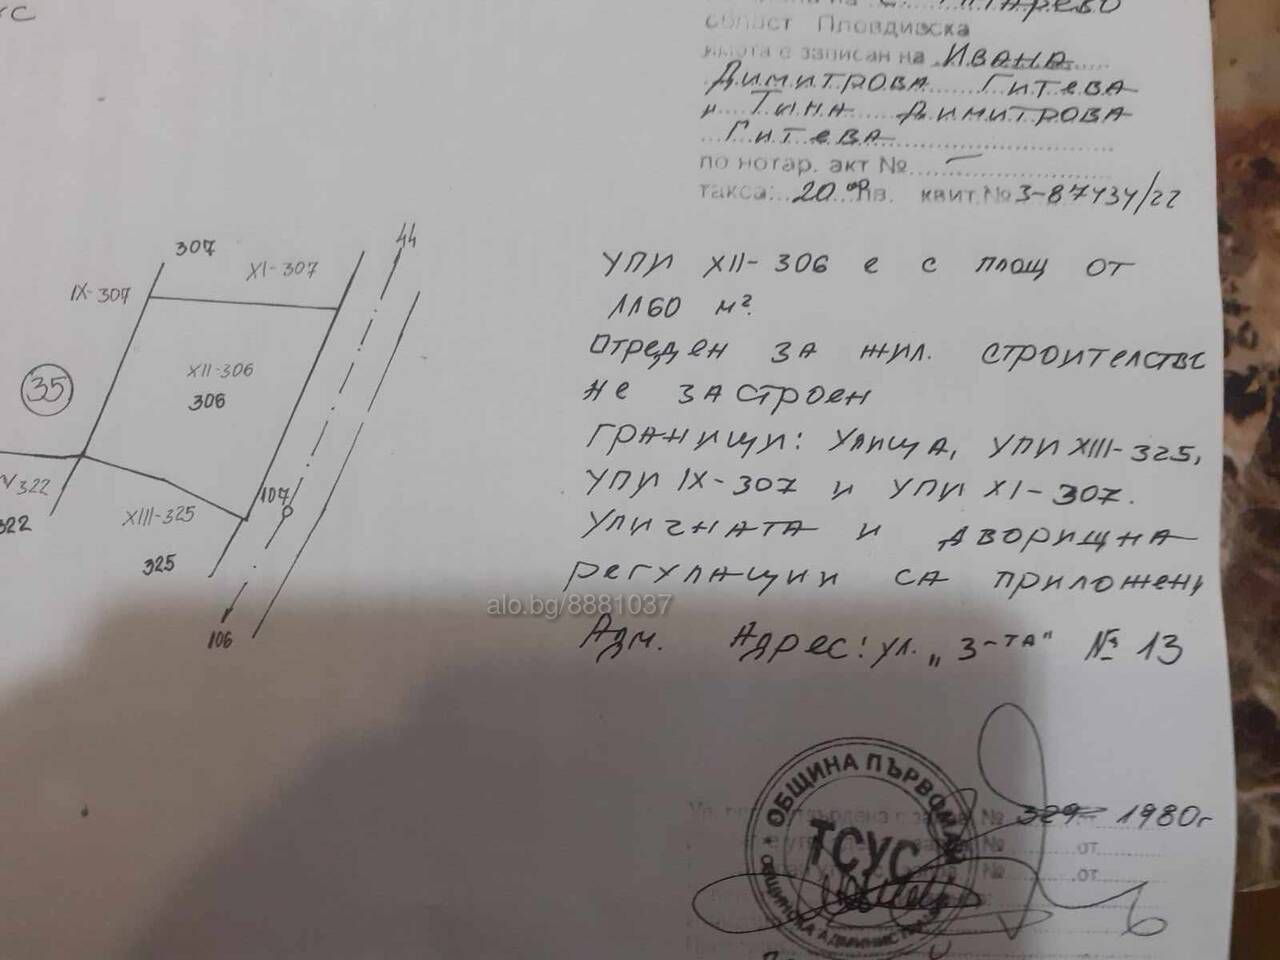 област Пловдивска
имота е записан на Ивана
Димитрова Гитева
и Тина Димитрова
Гитева
по нотар. акт №
такса: 20.00 лв. квит.№ 3-87434/22
44
307
XI-307
IX-307
35
XII-306
306
107
322
XIII-325
322
325
106
УПИ XII-306 е с площ от
1160 м².
Отреден за жил. строителс
не застроен
граници: улица, УПИ XIII-325,
УПИ IX-307 и УПИ XI-307.
Уличната и дворищна
регулации са приложени
alo.bg/8881037
Адм. Адрес: ул. „3-та" № 13
ОБЩИНА ПЪРВОМАЙ
ТСУС
ОБЩИНСКА АДМИНИСТРАЦИЯ
№ 329 1980г
№ от
№ от